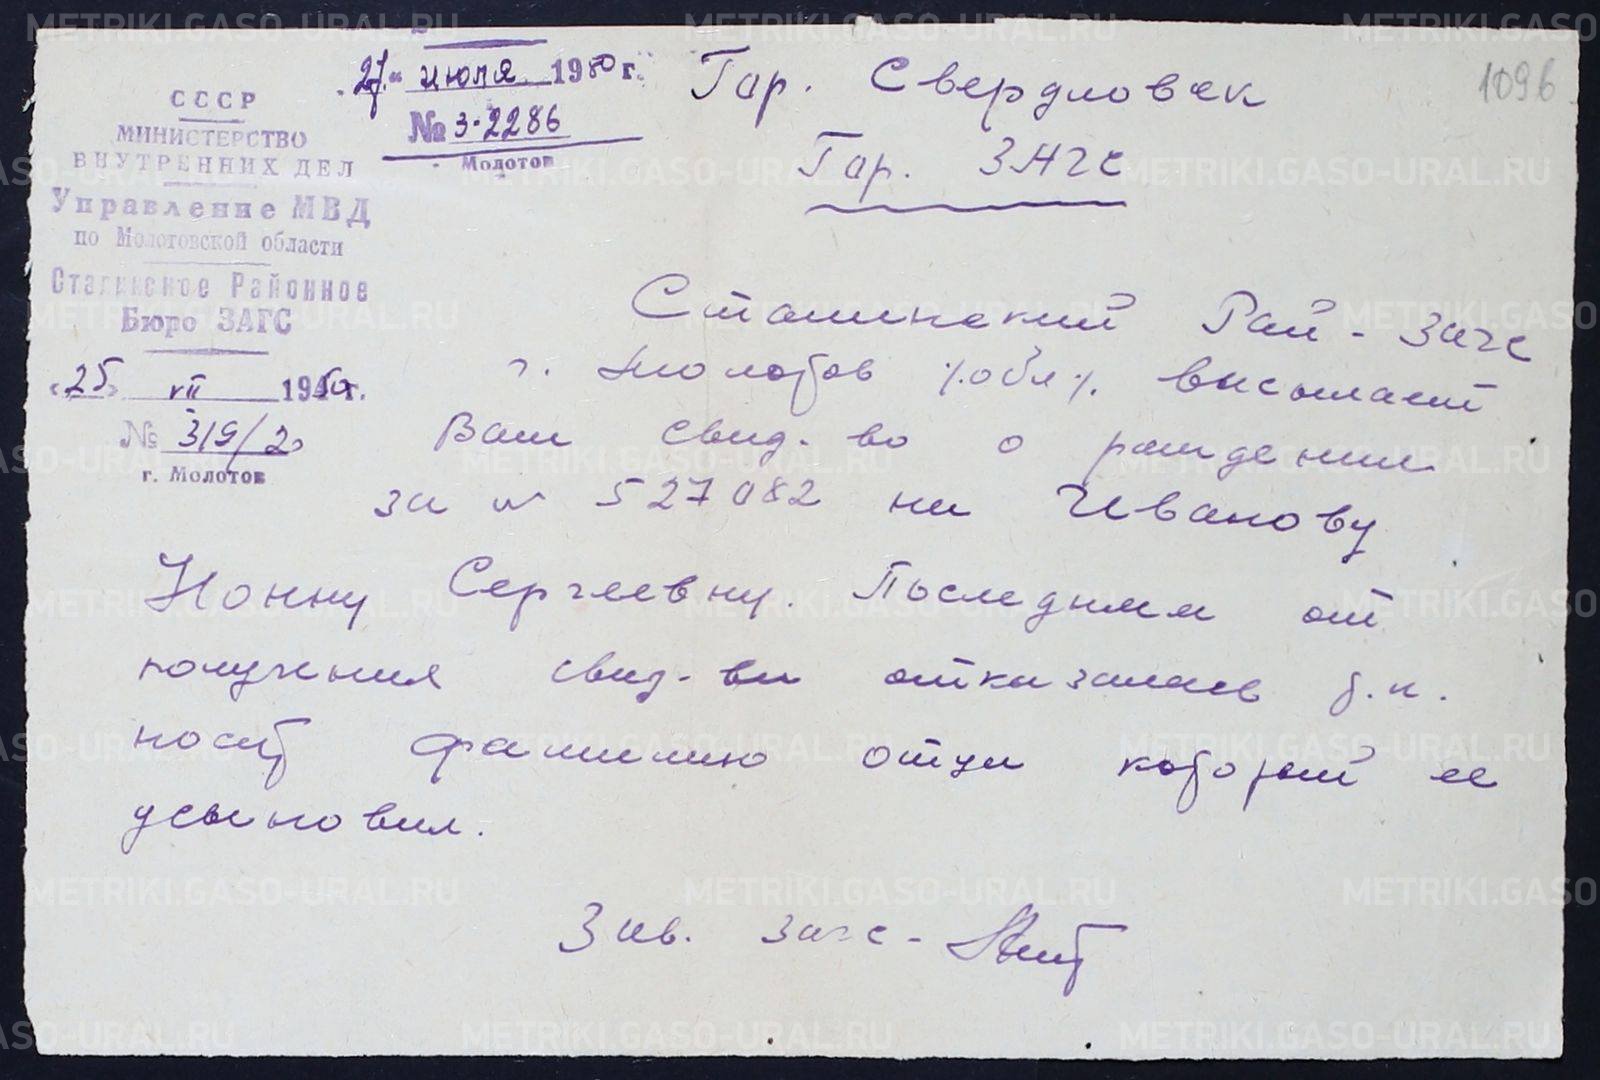 СССР
МИНИСТЕРСТВО
ВНУТРЕННИХ ДЕЛ
Управление МВД
по Молотовской области
Сталинское Районное
Бюро ЗАГС
«25» VII 1950г.
№ 319/20
г. Молотов
„27.“ июля 1950 г.
№ 3-2286
Молотов
Гор. Свердловск
Гор. ЗАГС
1096
Сталинский Рай-загс
г. Молотов /.обл/. высылает
Вам свид-во о рождении
за № 527082 на Иванову
Нонну Сергеевну. Последняя от
получения свид-ва отказалась т.к.
носит фамилию отца который ее
усыновил.
Зав. загс -
METRIKI.GASO-URAL.RU